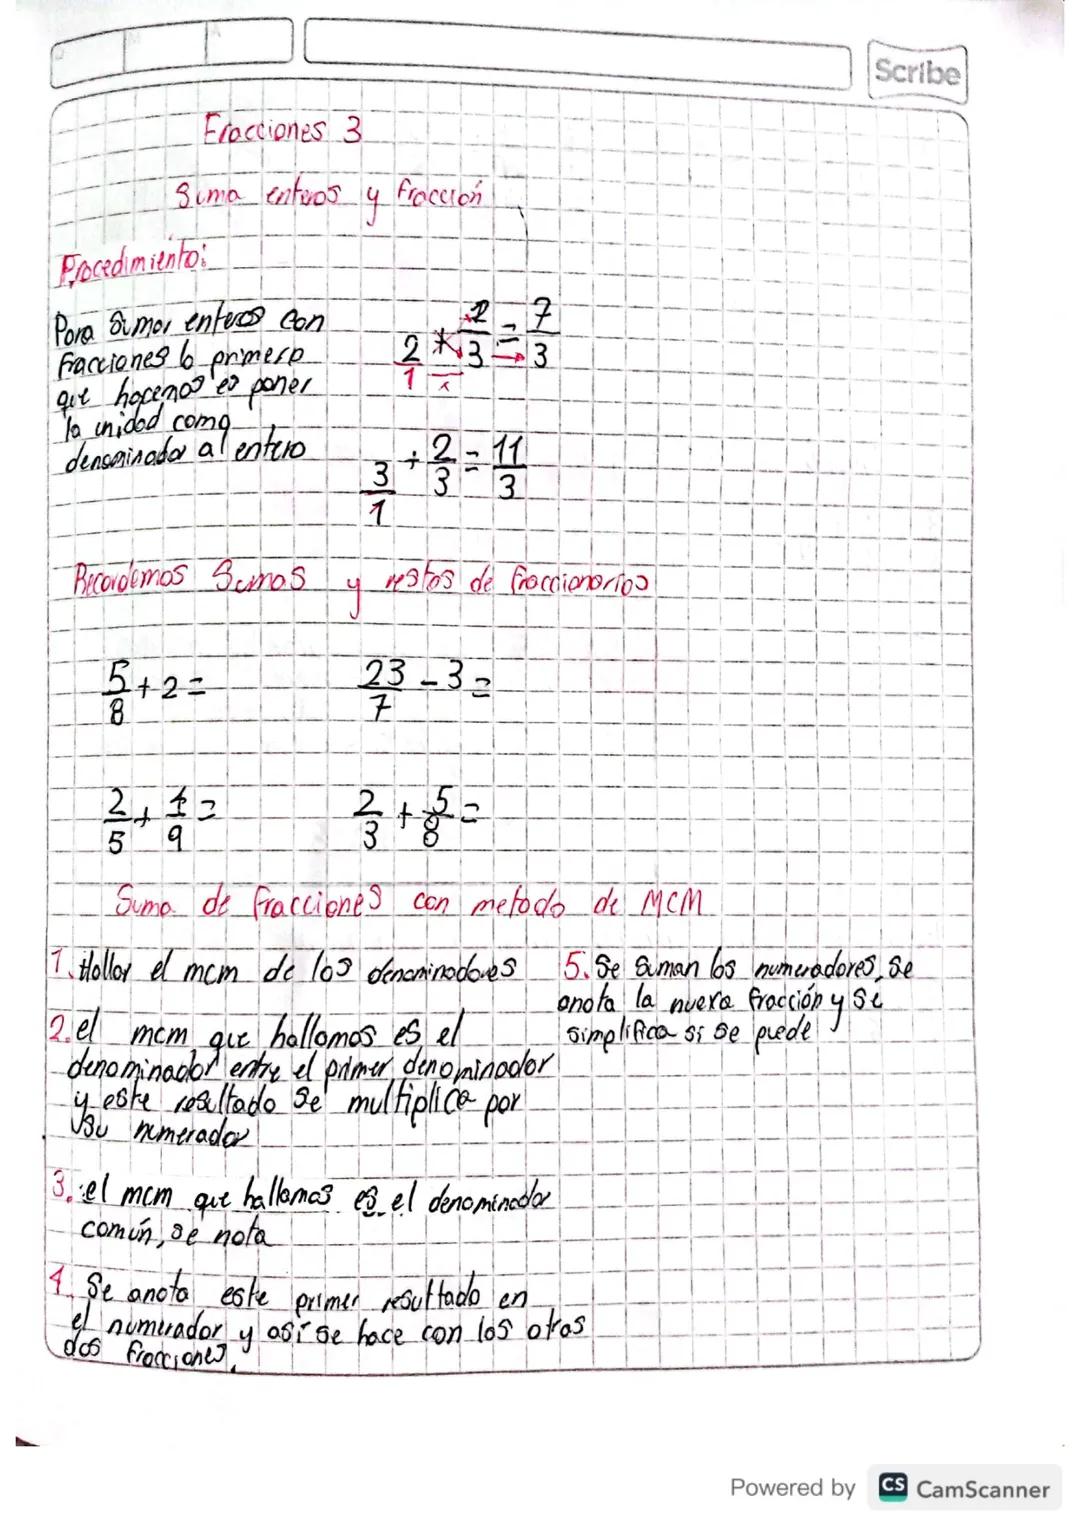 Scribe
Fracciones 3
Suma enteros y fracción
Procedimiento:
Para Sumar enteros con
fracciones lo primero
que hacemos es poner
la unidad como
denominador al entero
2/1 + 2/3 = 7/3
3/1 + 2/3 = 11/3
Recordemos Sumas y restas de fraccionarios
5/8 + 2 =
23/7 - 3 =
2/5 + 4/9 =
2/3 + 5/8 =
Suma de fracciones con metodo de MCM
1. Hallar el mcm de los denominadores
2. el mcm que hallamos es el
denominador entre el primer denominador
y este resultado se multiplica por
su numerador
3. el mcm que hallamos es el denominador
común, se nota
4. Se anota este primer resultado en
el numerador y así se hace con los otros
dos fracciones.
5. Se suman los numeradores, se
anota la nueva fracción y se
simplifica si se puede
Powered by CS CamScanner